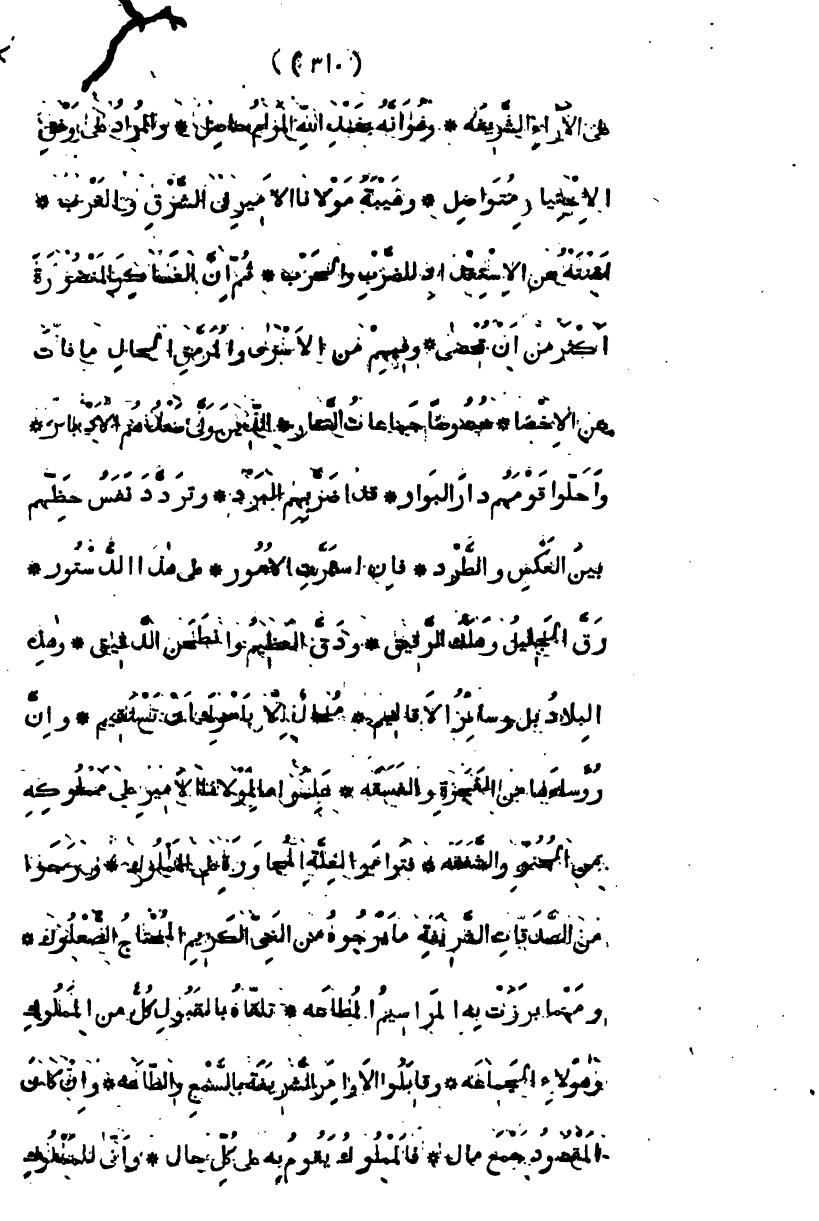 (٣١٠)
على الآراءِ الشَّرِيفَه * وهُوَ أنَّهُ بحَمْدِ اللهِ المَرامُ حاصِل * والمُرادُ على وَفْقِ
الاِخْتِيارِ مُتَواصِل * وهَيْبَةُ مَوْلانا الاَمِيرِ فى الشَّرْقِ والغَرْب *
أغْنَتْهُ عن الاِسْتِعْداد للضَّرْبِ والحَرْب * ثُمَّ اِنَّ العَساكِرَ المَنْصُورَةَ
اَكْثَرُ من اَنْ تُحْصَى * وفيهِمْ مَن الاَسْرَى والرُمَّقِ الحالِ ما فاتَ
عن الاِحْصا * خصُوصًا جَماعاتُ التَّتار * الَّذِينَ وَلَّى سَعْدُهُم الاَدْبار *
وَأَحَلّوا قَوْمَهُم دارَ البَوار * قد اضَرَّبِهِم البَرْد * وتَرَدَّدَ نَفَسُ حَظِّهم
بينَ العَكْسِ والطَّرْد * فاِن استَمَرَّت الاُمُور * على هَذا الدُّسْتُور *
رَقَّ الجَلِيلُ وهَلَكَ الرَّقِيق * ودَقَّ العَظِيمُ وانطَحَن الدَّقيق * وهذِه
البِلادُ بل وسائِرُ الاَقاليم * مُحالٌ اِلّا باَمْوَاتٍ تَسْتَقيم * وانَّ
رُؤَساءَها من الفَجَرَةِ والفَسَقَه * عَلِمُوا ما لِمَوْلانا الاَميرِ على مَمْلُوكِهِ
من الحُنُوِّ والشَّفَقَه * فتَواصَوا المِلَّةِ المُجاوَرَةِ على المَمْلُوك * ويَرجُوا
مِنَ الصَّدَقاتِ الشَّرِيفَةِ ما يَرْجُوهُ من الغَنِىِّ الكَرِيمِ المُحْتاجُ الصُّعْلُوك *
ومَهْما بَرَزَتْ بِه المَراسِيمُ المُطاعَه * تلَقّاهُ بالقَبُولِ كُلٌّ من المَمْلُوكِ
وهَؤُلاءِ الجَماعَه * وقابَلُوا الاَوامِرَ الشَّرِيفَةَ بالسَّمْعِ والطّاعَه * وانْ كانَ
المَقْصُودُ جَمْعَ مال * فالمَمْلُوكُ يَقُومُ بِه على كُلِّ حال * وَاَنَّى للمَمْلُوكِ